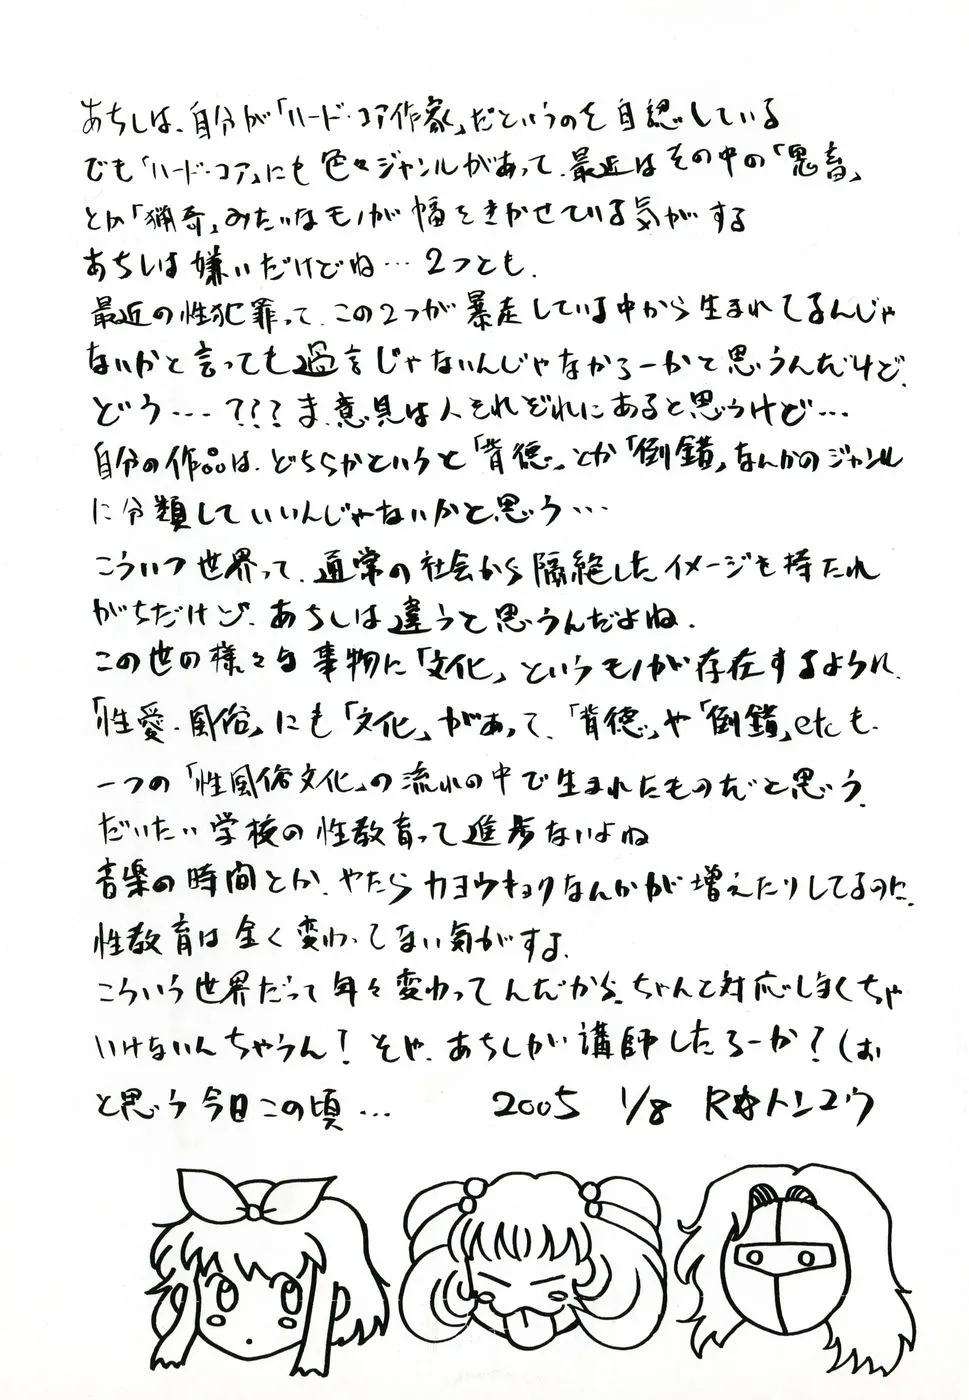 あちしは、自分が「ハード・コア作家」だというのを自認している
でも「ハード・コア」にも色々ジャンルがあって、最近はその中の「鬼畜」
とか「猟奇」みたいなモノが幅をきかせている気がする
あちしは嫌いだけどね…2つとも.
最近の性犯罪って、この2つが暴走している中から生まれてるんじゃ
ないかと言っても過言じゃないんじゃなかろーかと思うんだけど、
どう…???ま、意見は人それぞれにあると思うけど…
自分の作品は、どちらかというと「背徳」とか「倒錯」なんかのジャンル
に分類していいんじゃないかと思う…
こういつ世界って、通常の社会から隔絶したイメージを持たれ
がちだけど、あちしは違うと思うんだよね.
この世の様々な事物に「文化」というモノが存在するように、
「性愛・風俗」にも「文化」があって、「背徳」や「倒錯」etcも、
一つの「性風俗文化」の流れの中で生まれたものだと思う、
だいたい学校の性教育って進歩ないよね
音楽の時間とか、やたらカヨウキョクなんかが増えたりしてるのに、
性教育は全く変わってない気がする、
こういう世界だって年々変わってんだから、ちゃんと対応しまくちゃ
いけないんちゃうん!そや、あちしが講師したろーか?(お
と思う今日この頃… 2005 1/8 R トンユウ